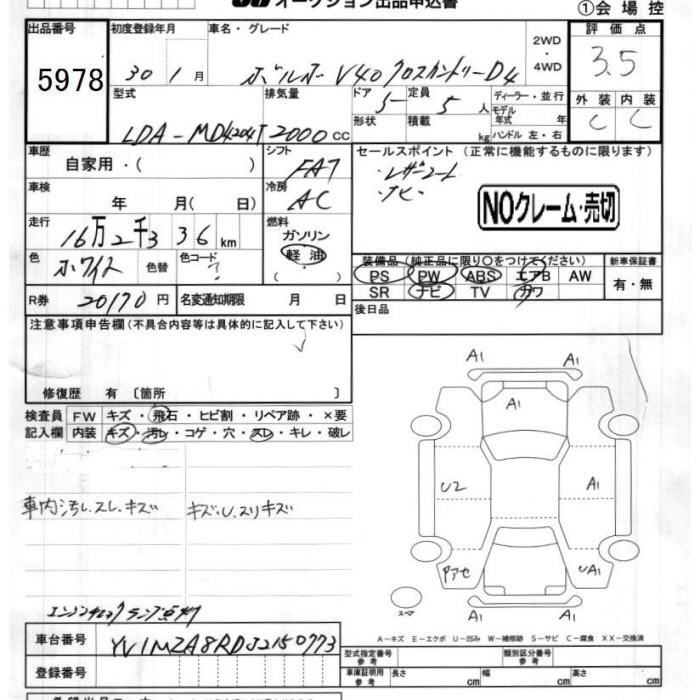 オークション出品申込書
①会場控
出品番号 初度登録年月 車名・グレード 評価点
5978
30年1月 ボルボ V40クロスカントリーD4 2WD・4WD 3.5
型式 排気量 ドア 定員 ディーラー・並行 外装 内装
LDA-MD4204T 2000cc 5 5人 モデル年式 年 C C
形状 積載 kg ハンドル 左・右
車歴 シフト セールスポイント (正常に機能するものに限ります)
自家用・( ) FA7 ・レザーシート
車検 冷房 ・ナビ・
年 月( 日) AC NOクレーム・売切
走行 燃料
16万2千336km ガソリン
軽油
色 色替 色コード 装備品(純正品に限り○をつけてください) 新車保証書
ホワイト ? PS PW ABS エアB AW 有・無
SR ナビ TV カワ
R券 20170円 名変通知期限 月 日 後日品
注意事項申告欄(不具合内容等は具体的に記入して下さい)
修復歴 有 〔箇所 〕
検査員 FW キズ・飛石・ヒビ割・リペア跡・×要
記入欄 内装 キズ・汚レ・コゲ・穴・スレ・キレ・破レ
A1 A1
A1
U2 A1
Pアセ UA1
スペア
A1 A1
車内汚レ、スレ、キズ キズ・U、スリキズ
エンジンチェックランプ点灯
A-キズ E-エクボ U-凹み W-補修跡 S-サビ C-腐食 XX-交換済
車台番号 YV1MZA8RDJ2150773
型式指定番号 参考 類別区分番号 参考
登録番号 車庫証明用 参考 長さ cm 幅 cm 高さ cm